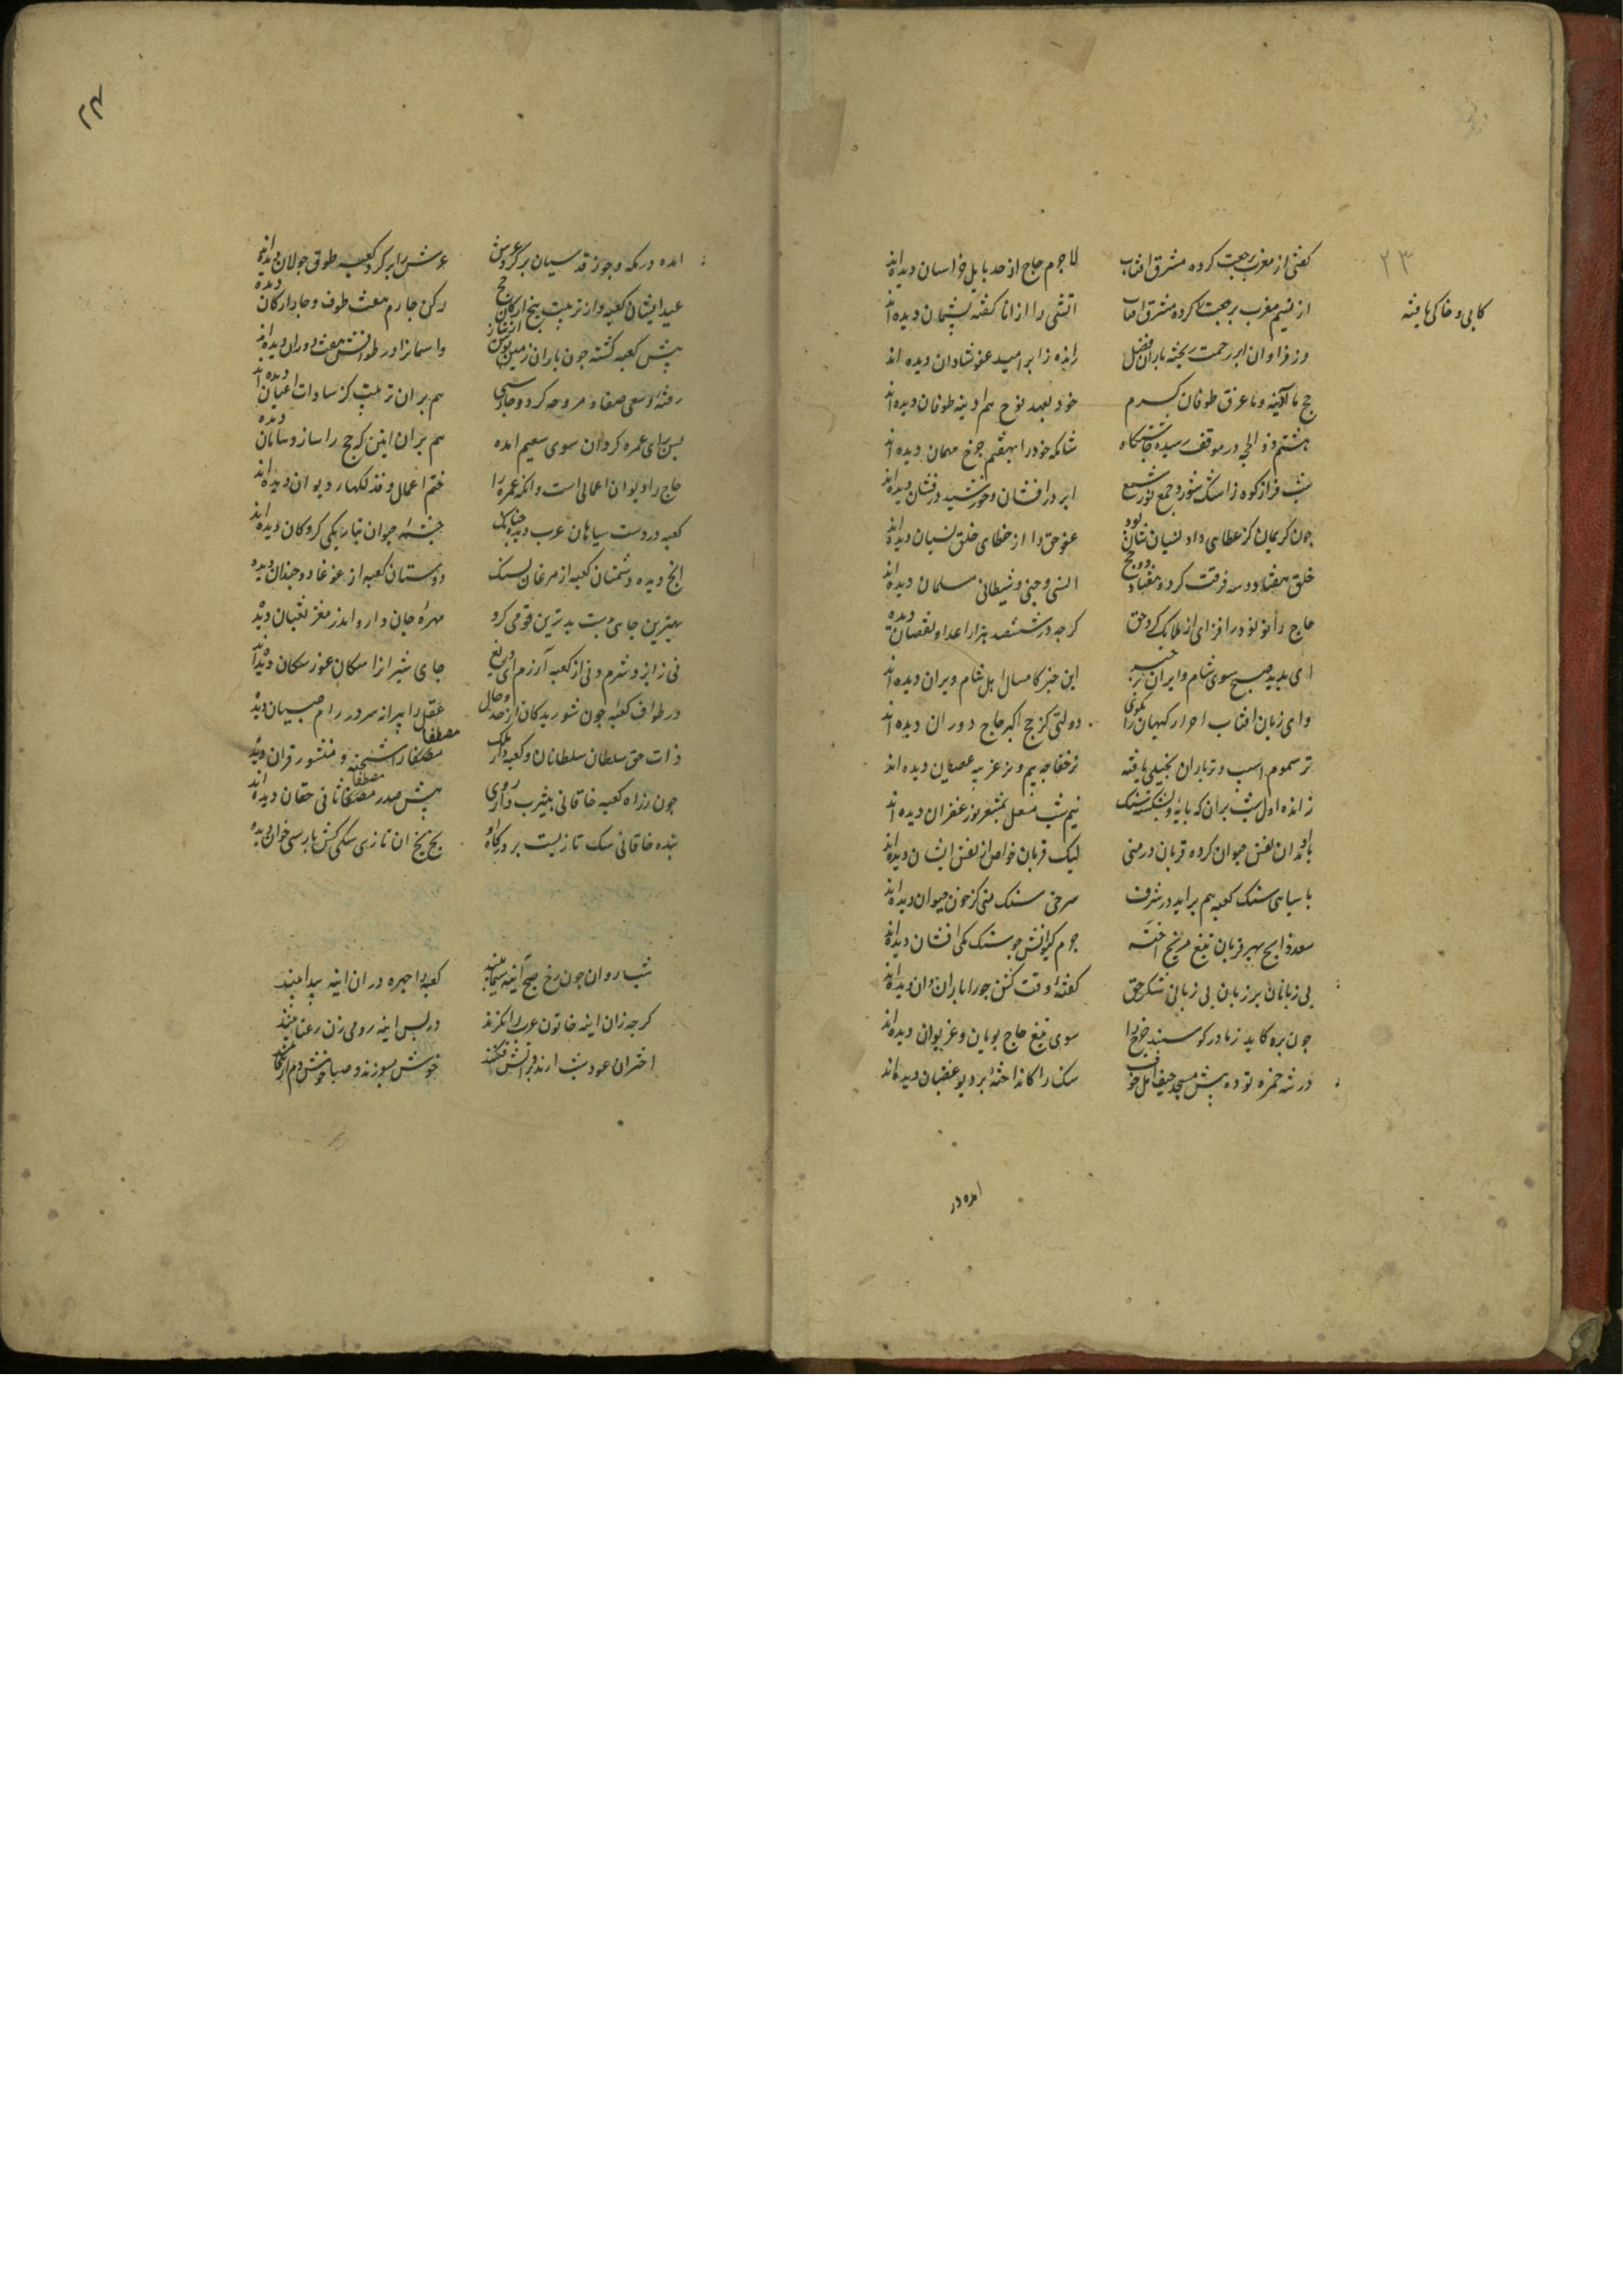 ۲۳
کفتی از مغرب رجعت کرده مشرق افتاب لاجرم حاج از حد بابل خراسان دیده‌اند
از نسیم مغرب رجعت کرده مشرق افتاب اتشی را از انا کفته پشیمان دیده‌اند
کابی و خاکی یافته
وز فراوان ابر رحمت ریخته باران فضل رانده را بر امید عفو شادان دیده اند
حج ما آدینه و ما غرق طوفان کرم خود بعهد نوح هم ادینه طوفان دیده‌اند
هشتم ذوالحجه در موقف رسیده چاشتگاه شامکه خود را بهفتم چرخ مهمان دیده‌اند
شب فراز کوه ز اشک شور و جمع نور شمع ابر در افشان و خورشید درفشان دیده‌اند
چون کریمان کز عطای داد نسیان شان بود عفو حق را از خطای خلق نسیان دیده‌اند
خلق هفتاد و سه فرقت کرد و هفتاد و دو حج انسی و جنی و شیطانی مسلمان دیده‌اند
حاج را نو نو در افزای از ملائک کرد حق کرچه در ششصد هزار اعداد نقصان دیده
ای برید صبح سوی شام و ایران بر خبر این خبر کامسال اهل شام و ایران دیده‌اند
وای زبان افتاب احرار کیهان را بکوی دولتی کز حج اکبر حاج دوران دیده‌اند
تر سموم اسب و نز باران بخیلی یافته نز خفاجه بیم و نز غزیه عصیان دیده‌اند
رانده اول شب بران که پایه و بشکسته سنک نیم شب مشعل بمشعر نور غفران دیده‌اند
بامدادان نفس حیوان کرده قربان در منی لیک قربان خواص از نفس انسان دیده‌اند
با سیاهی سنک کعبه هم برابر در شرف سرخی سنک منی کز خون حیوان دیده‌اند
سعد ذابح بهر قربان تیغ مریخ اخته جرم کیوانش چو سنک مکی افشان دیده‌اند
بی زبانان بر زبان بی زبانی شکر حق کفته وقت کشتن
چون بره کاید ز مادر کوسفند چرخ را سوی تیغ حاج پویان و غریوان دیده‌اند
در سه جمره بوده پیش مسجد خیف اهل خوف سنک را کانداخته بر دیو غضبان دیده‌اند
امده در
۲۴
امده در مکه و چون قدسیان بر کرد عرش عرش را بر کرد کعبه طوف جولان دیده‌اند
عید ایشان کعبه و از ترتیب پنج ارکان حج رکن چارم هفت طوف و چار ارکان دیده
پیش کعبه کشته چون باران زمین بوس از نیاز و اسمان را در طوافش هفت دوران دیده‌اند
رفته و سعی صفا و مروه کرده و چار و سه هم بران ترتیب کز سادات اعیان دیده‌اند
پس برای عمره کردن سوی تنعیم امده هم بران ایین که حج را ساز و سامان دیده
حاج را دیوان اعمال است و انکه عمره را ختم اعمال و فذلکهای دیوان دیده‌اند
کعبه در دست سیاهان عرب دیده چنانک چشمه حیوان بتاریکی کروکان دیده‌اند
انچ دیده دشمنان کعبه از مرغان بسنک دوستان کعبه از غوغا دو چندان دیده
بهترین جای بدست بدترین قومی کرو مهره جان دارو اندر مغز ثعبان دیده
نی ز ایزد شرم و نی از کعبه آزرم ای دریغ جای شیران را سکان عور سکان دیده‌اند
در طواف کعبه چون شوریدکان از وجد و حال عقل را پیرانه سر در ام صبیان دیده
ذات حق سلطان سلطانان و کعبه دار ملک مصطفی را شحنه و منشور قران دیده
چون ز راه کعبه خاقانی بیثرب داد روی پیش صدر مصطفی ثانی حسان دیده‌اند
بنده خاقانی سک تازیست بر درکاه او بخ بخ ان تازی سکی کش پارسی خوان دیده
شب روان چون رخ صبح آینه سیما بینند کعبه را چهره دران اینه پیدا بینند
کرچه زان اینه خاتون عرب را نکرند در پس اینه رومی زن رعنا بینند
اختران عود شب ارند و بر اتش فکنند خوش بسوزند و صبا خوش دم ازان جا بینند